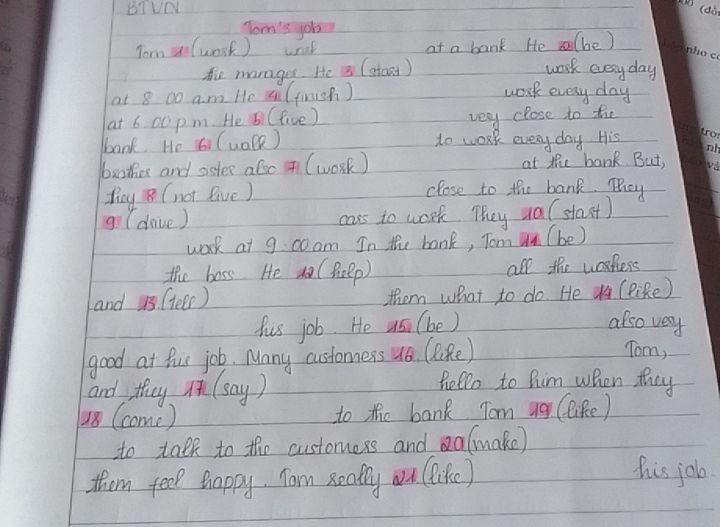 BTVN
Tom's job
Tom 1 (work) work at a bank He 2 (be)
the manager He 3 (start) work every day
at 8 00 a.m He 4 (finish) work every day
at 6 00 p.m He 5 (live) very close to the
bank. He 6 (walk) to work every day His
brother and sister also 7 (work) at the bank But,
they 8 (not live) close to the bank. They
9. (drive) cars to work They 10 (start)
work at 9.00am In the bank, Tom 11 (be)
the boss He 12 (help) all the workers
and 13. (tell) them what to do He 14 (like)
his job. He 15. (be) also very
good at his job. Many customers 16. (like) Tom,
and they 17 (say) hello to him when they
18 (come) to the bank Tom 19 (like)
to talk to the customers and 20 (make)
them feel happy. Tom really 21 (like) his job.
nho